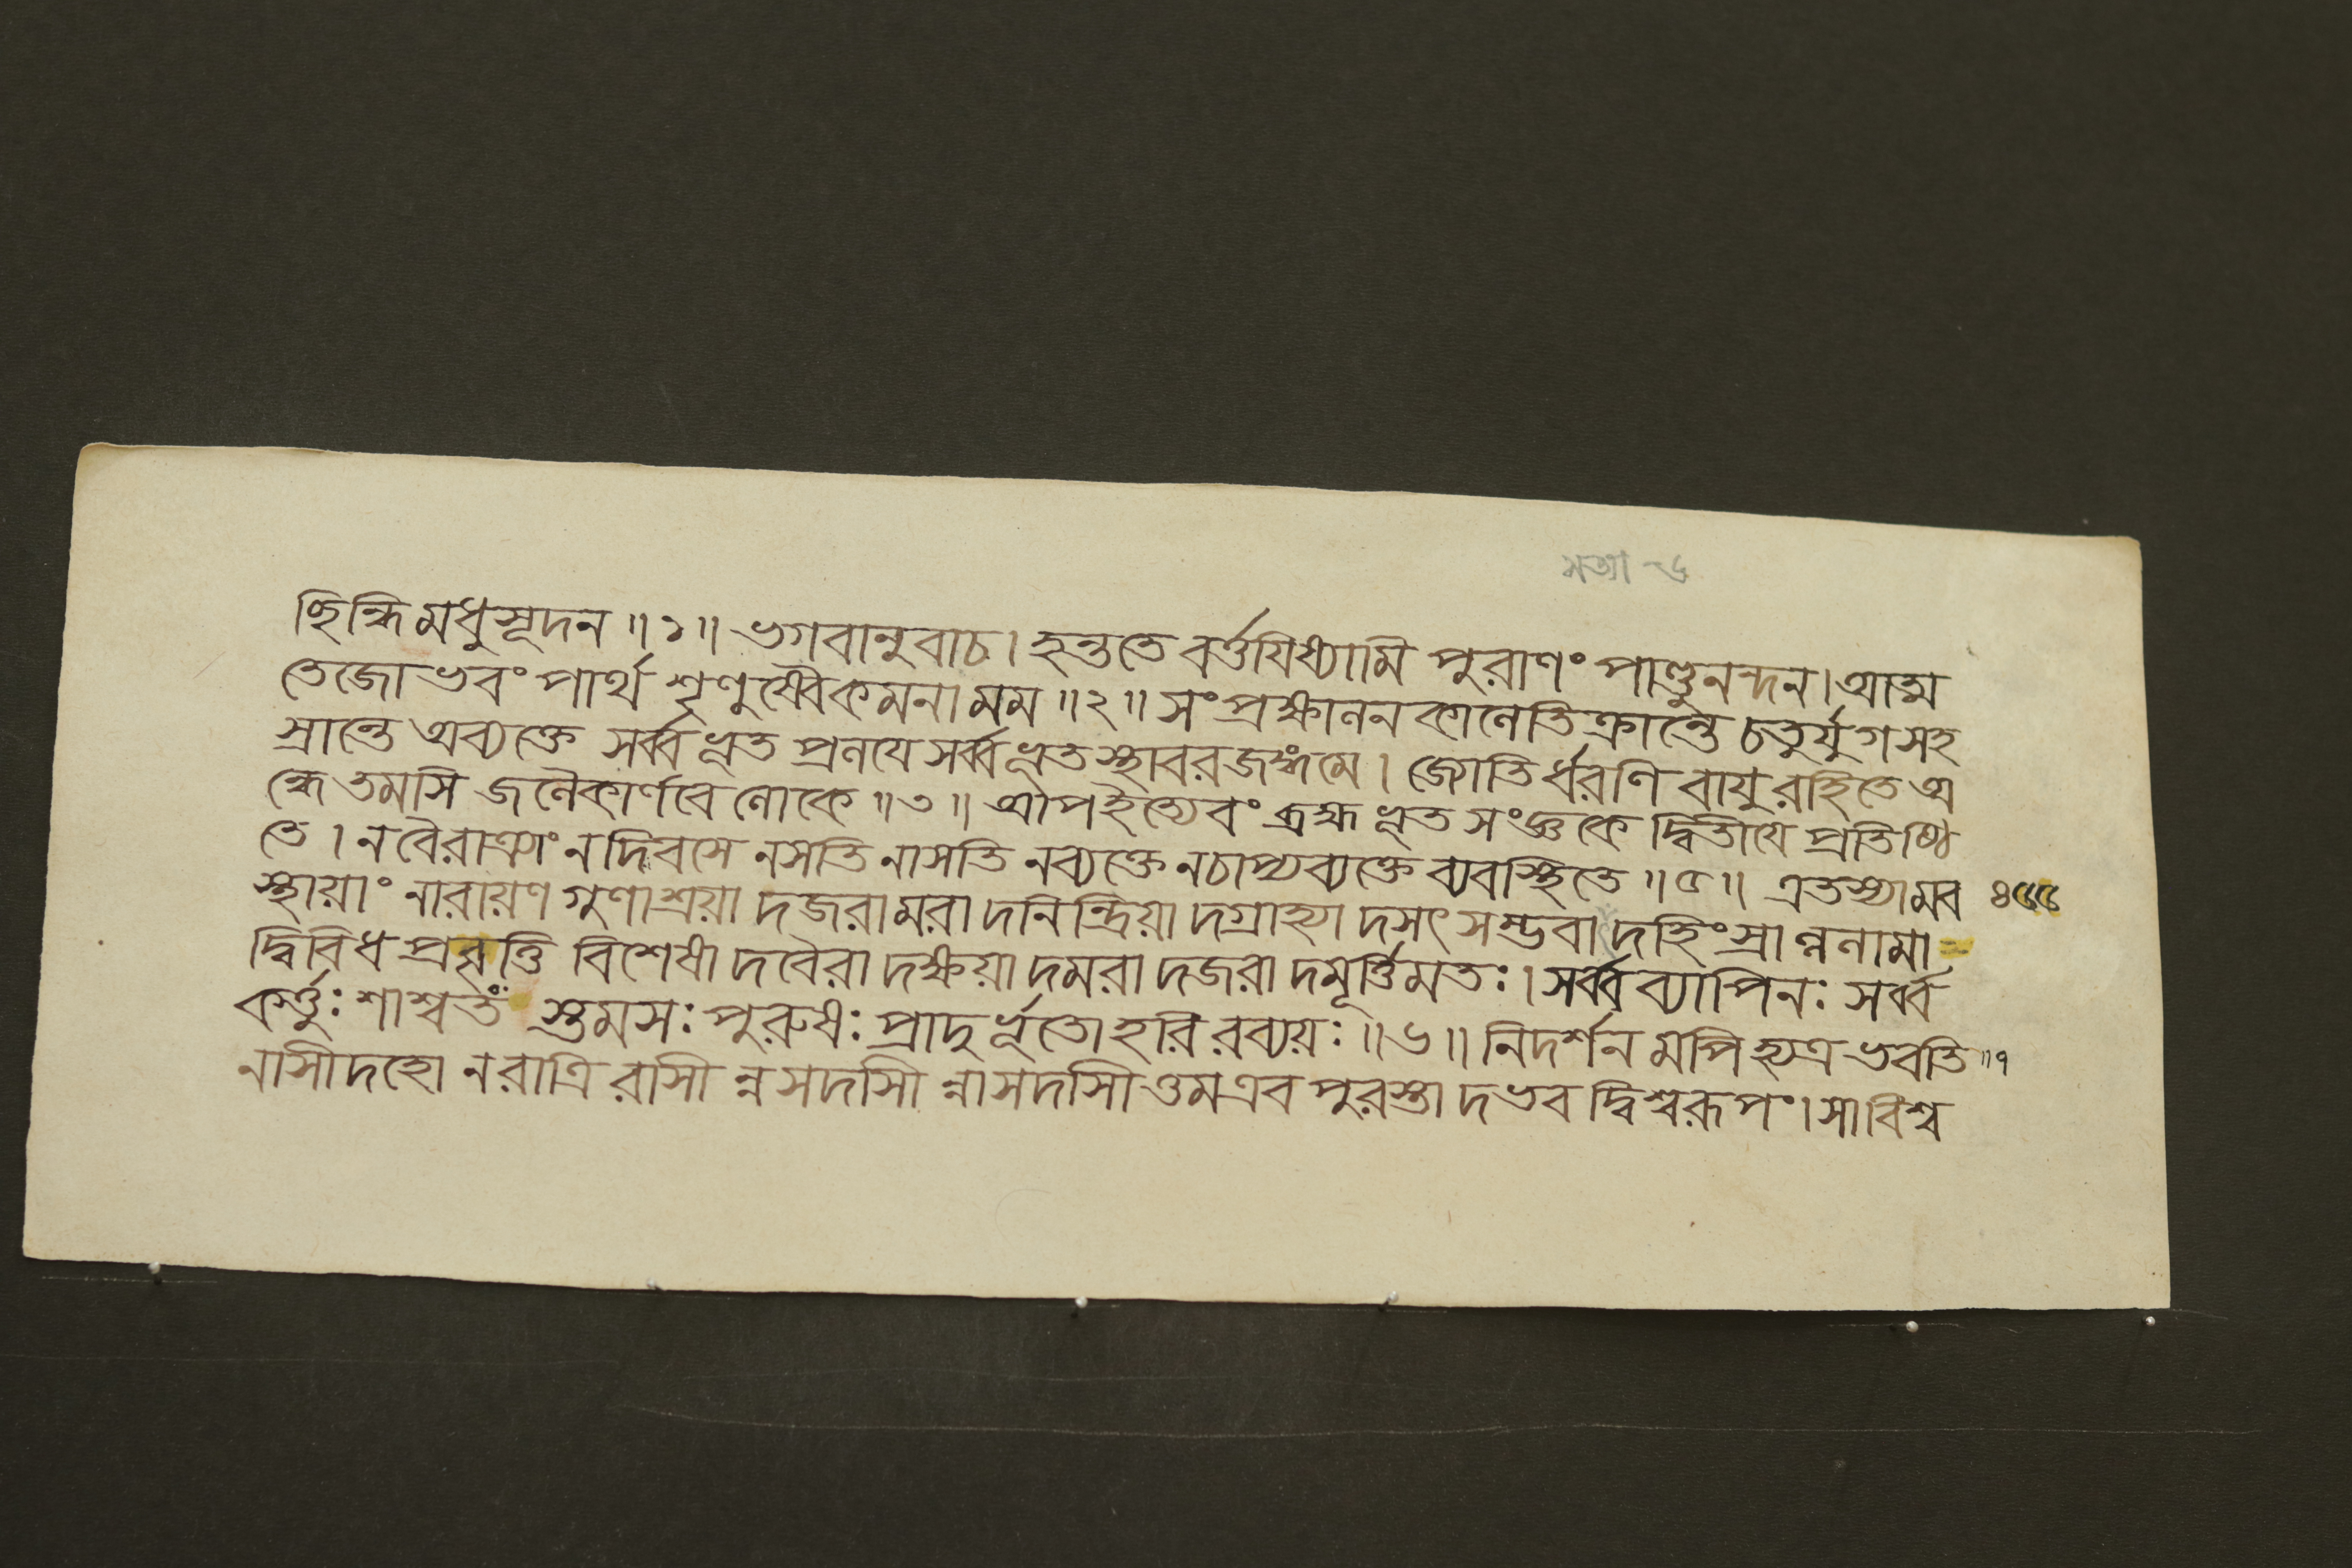 মভা - ৬
ছিন্ধি মধুসূদন ॥ ১ ॥ ভগবানুবাচ । হন্ততে বর্ত্তযিষ্যামি পুরাণং পাণ্ডুনন্দন । আত্ম
তেজোভবং পার্থ শৃণুষ্বৈকমনা মম ॥ ২ ॥ সংপ্রক্ষালন কালেতিক্রান্তে চতুর্যুগসহ
স্রান্তে অব্যক্তে সর্ব্বভূত প্রলযে সর্ব্বভূত স্থাবরজঙ্গমে । জ্যোতির্ধরণি বাযু রহিতে অ
ন্ধে তমসি জলৈকার্ণবে লোকে ॥ ৩ ॥ আপইত্যেবং ব্রহ্মভূত সংজ্ঞকে দ্বিতীযে প্রতিষ্ঠি
তে । নবৈরাত্র্যাং নদিবসে নসতি নাসতি নব্যক্তে নচাপ্যব্যক্তে ব্যবস্থিতে ॥ ৫ ॥ এতস্যামব ৪৫৫
স্থায়াং নারায়ণ গুণাশ্রয়া দজরামরা দনিন্দ্রিয়া দগ্রাহ্যা দসৎ সম্ভবা দহিংস্রান্ননামা =
দ্বিবিধ প্রবৃত্তি বিশেষা দবৈরা দক্ষয়া দমরা দজরা দমূর্ত্তিমতঃ । সর্ব্বব্যাপিনঃ সর্ব্ব
কর্ত্তুঃ শাশ্বত স্তমসঃ পুরুষঃ প্রাদুর্ভূতো হরি রব্যয়ঃ ॥ ৬ ॥ নিদর্শন মপি হ্যত্র ভবতি ॥ ৭
নাসীদহো নরাত্রি রাসী ন্নসদসী ন্নাসদসী ওমএব পুরস্তা দভব দ্বিশ্বরূপং । সাবিশ্ব